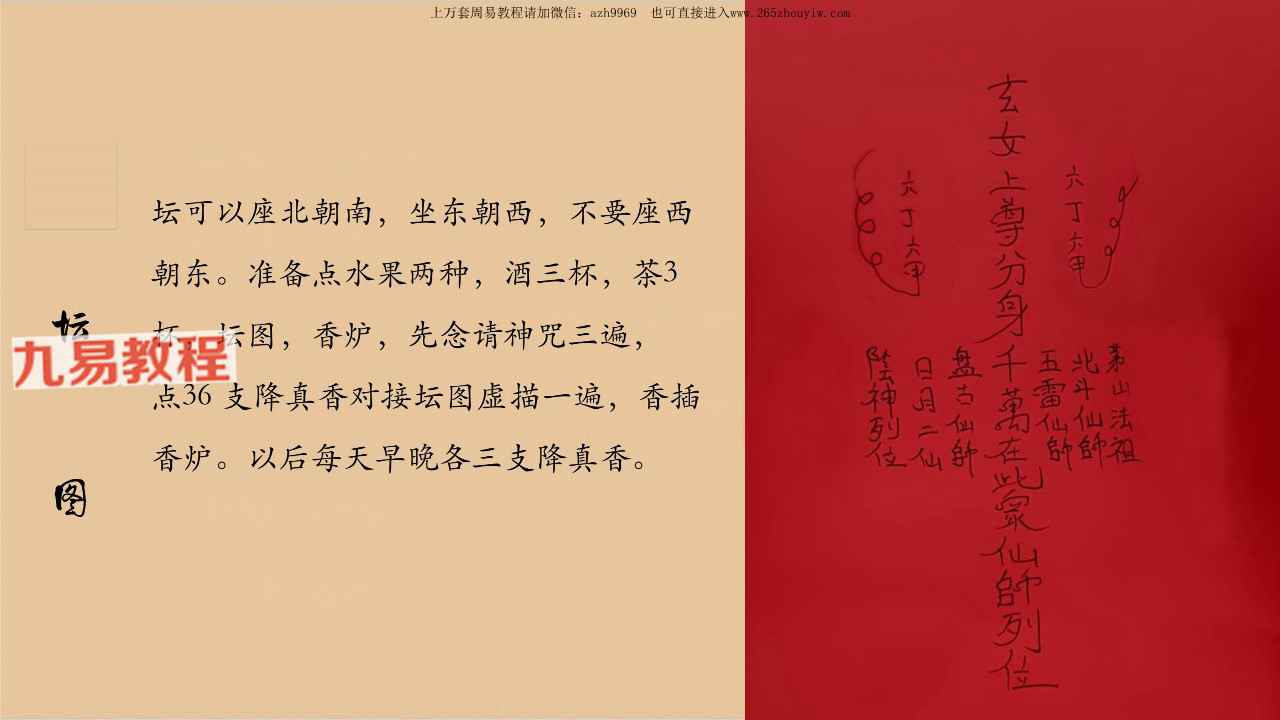 上万套周易教程请加微信：azh9969 也可直接进入www.265zhouyiw.com
坛
图
九易教程
坛可以座北朝南，坐东朝西，不要座西
朝东。准备点水果两种，酒三杯，茶3
杯，坛图，香炉，先念请神咒三遍，
点36 支降真香对接坛图虚描一遍，香插
香炉。以后每天早晚各三支降真香。
茅山法祖
北斗仙師
五雷仙師
六丁六甲
玄女上尊分身千萬在此眾仙師列位
盘古仙師
六丁六甲
日月二仙
陰神列位